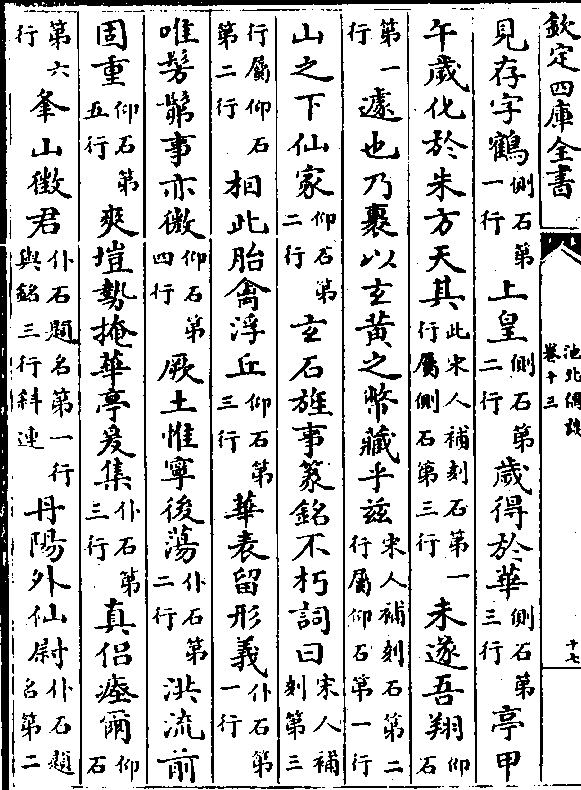 欽定四庫全書
池北偶談
卷十三
十七
見存字鶴側石第一行上皇側石第二行歲得於華側石第三行亭甲
午歲化於朱方天其此宋人補刻石第一行屬側石第三行未遂吾翔仰石
第一行遽也乃裹以玄黃之幣藏乎茲宋人補刻石第二行屬仰石第一行
山之下仙家仰石第二行玄石旌事篆銘不朽詞曰宋人補刻第三
行屬仰石第二行相此胎禽浮丘仰石第三行華表留形義仆石第一行
唯髣髴事亦微仰石第四行厥土惟寧後蕩仆石第二行洪流前
固重仰石第五行爽塏勢掩華亭爰集仆石第三行真侶瘞爾仰石
第六行夆山徵君仆石題名第一行與銘三行斜連丹陽外仙尉仆石題名第二